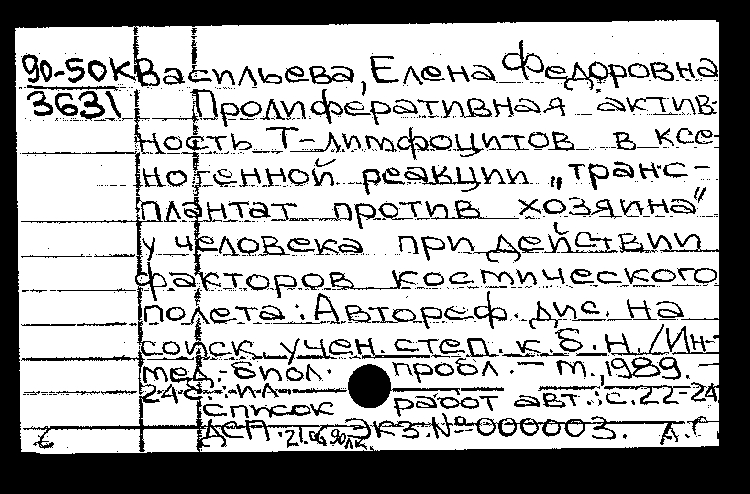 90-50К Васильева, Елена Федоровна
3631 Пролиферативная актив-
ность Т-лимфоцитов в ксе-
ногенной реакции „транс-
плантат против хозяина“
у человека при действии
факторов космического
полета: Автореф. дис. на
соиск. учен. степ. к.б.н. / Ин-т
мед.-биол. пробл. - М., 1989. -
24с.: ил.
список работ авт.: с. 22-24
ДСП. 21.06.90 Экз. № 000003. А.С.